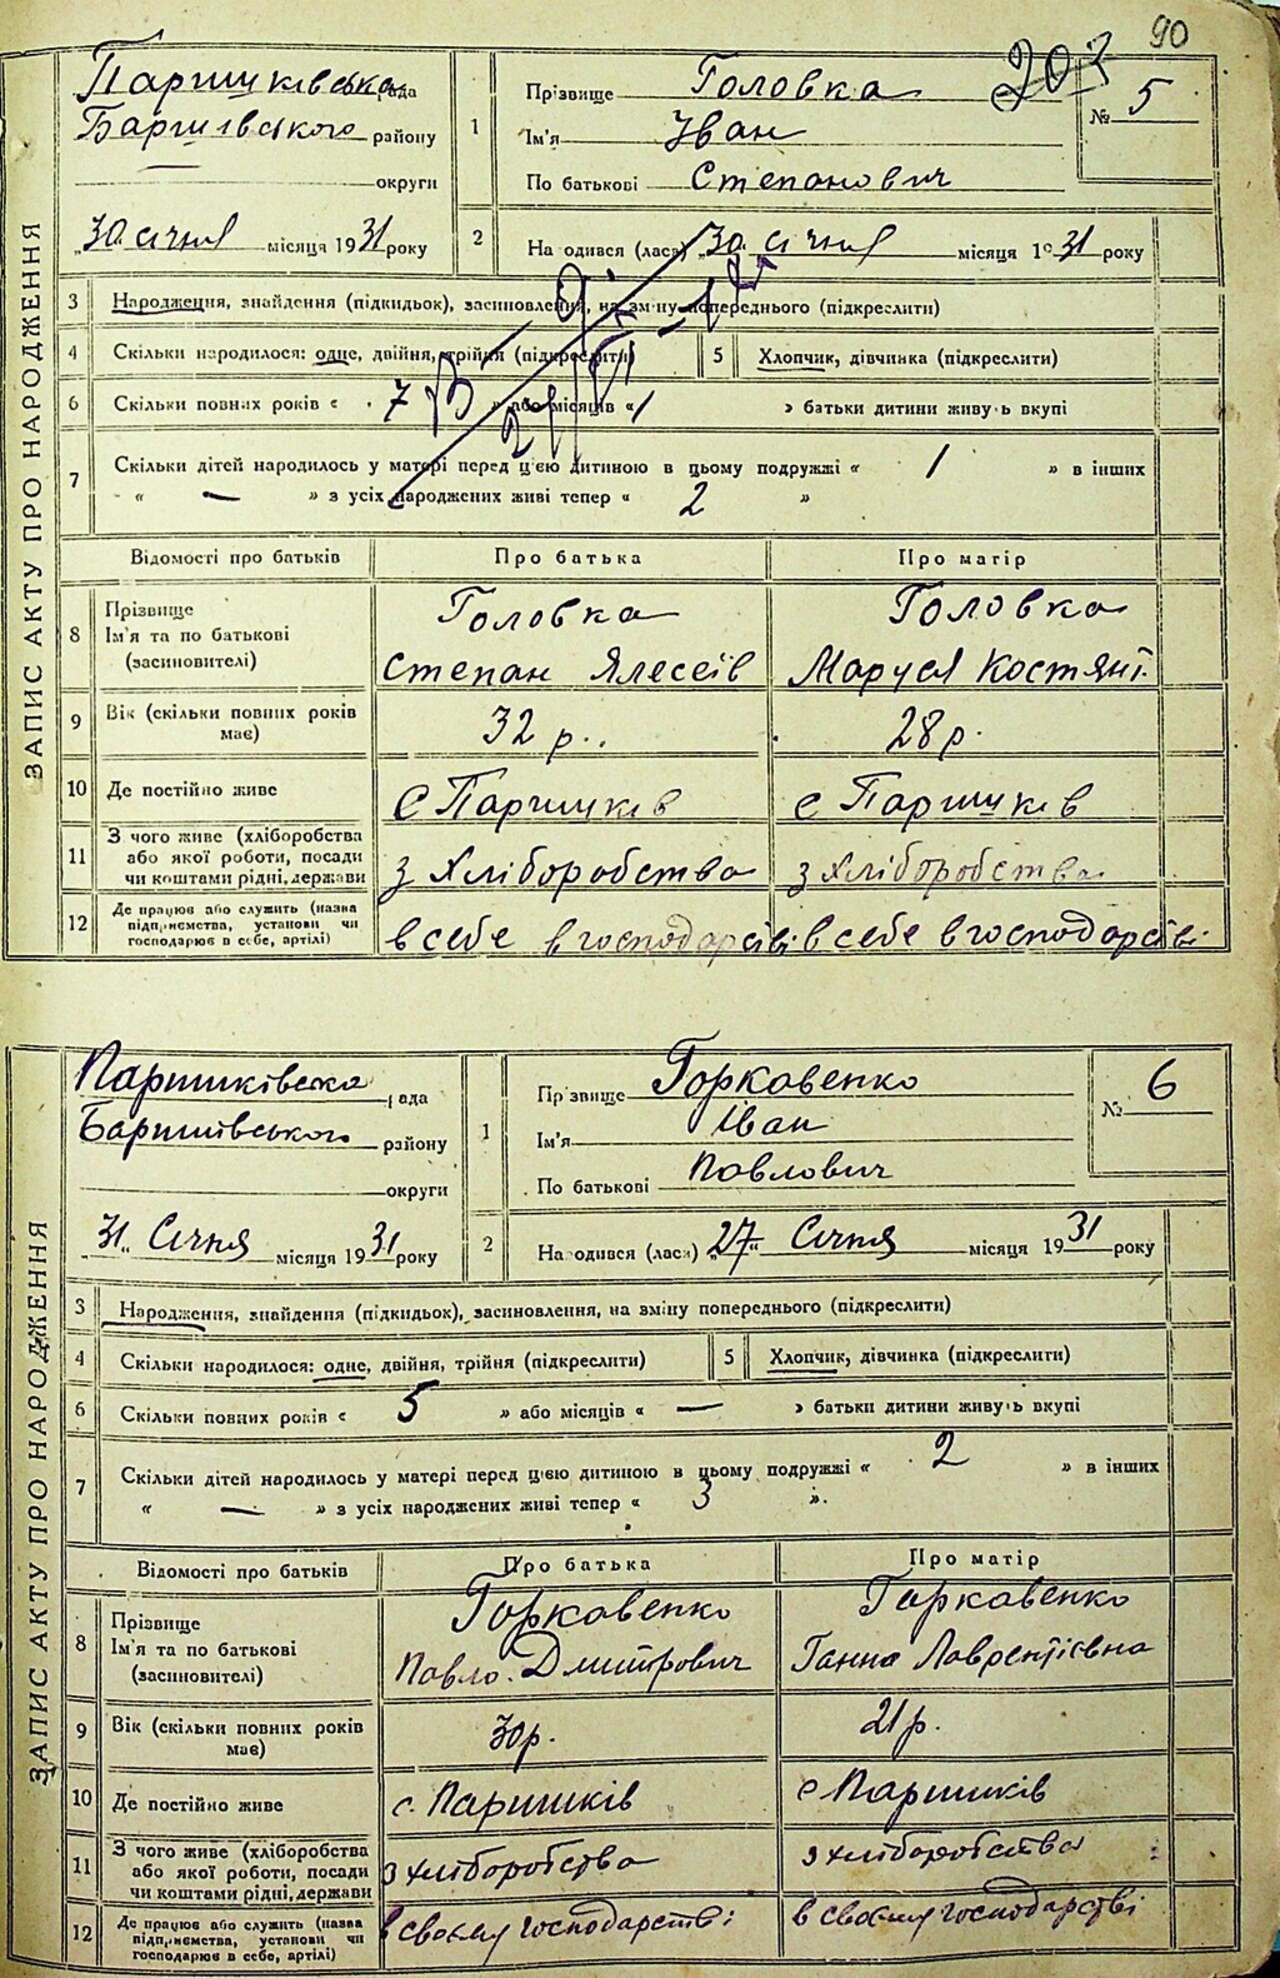 90
203
ЗАПИС АКТУ ПРО НАРОДЖЕННЯ
Паришківська рада
Баришівського району
— округи
„30 січня місяця 1931 року
1
Прізвище Головка
Ім'я Іван
По батькові Степанович
№ 5
2
На одився (лася) „30 січня місяця 1931 року
3 Народження, знайдення (підкидьок), засиновлення, на зміну попереднього (підкреслити)
4 Скільки народилося: одне, двійня, трійня (підкреслити) 5 Хлопчик, дівчинка (підкреслити)
6 Скільки повних років « 7 » або місяців « 1 » батьки дитини живуть вкупі
7 Скільки дітей народилось у матері перед цією дитиною в цьому подружжі « 1 » в інших
« — » з усіх народжених живі тепер « 2 »
Відомості про батьків Про батька Про матір
8 Прізвище
Ім'я та по батькові
(засиновителі)
Головка
Степан Алесеїв
Головка
Маруся Костянт.
9 Вік (скільки повних років має) 32 р. 28 р.
10 Де постійно живе с Паришків с Паришків
11 З чого живе (хліборобства
або якої роботи, посади
чи коштами рідні, держави
з хліборобства з хліборобства
12 Де працює або служить (назва
підприємства, установи чи
господарює в себе, артілі)
в себе в господарстві в себе в господарстві
ЗАПИС АКТУ ПРО НАРОДЖЕННЯ
Паришківська рада
Баришівського району
округи
„31“ Січня місяця 1931 року
1
Прізвище Горкавенко
Ім'я Іван
По батькові Павлович
№ 6
2
На одився (лася) „27“ Січня місяця 1931 року
3 Народження, знайдення (підкидьок), засиновлення, на зміну попереднього (підкреслити)
4 Скільки народилося: одне, двійня, трійня (підкреслити) 5 Хлопчик, дівчинка (підкреслити)
6 Скільки повних років « 5 » або місяців « — » батьки дитини живуть вкупі
7 Скільки дітей народилось у матері перед цією дитиною в цьому подружжі « 2 » в інших
« — » з усіх народжених живі тепер « 3 ».
Відомості про батьків Про батька Про матір
8 Прізвище
Ім'я та по батькові
(засиновителі)
Горкавенко
Павло Дмитрович
Горкавенко
Ганна Лаврентієвна
9 Вік (скільки повних років має) 30 р. 21 р.
10 Де постійно живе с. Паришків с Паришків
11 З чого живе (хліборобства
або якої роботи, посади
чи коштами рідні, держави
з хліборобства з хліборобства
12 Де працює або служить (назва
підприємства, установи чи
господарює в себе, артілі)
в своєму господарстві в своєму господарстві